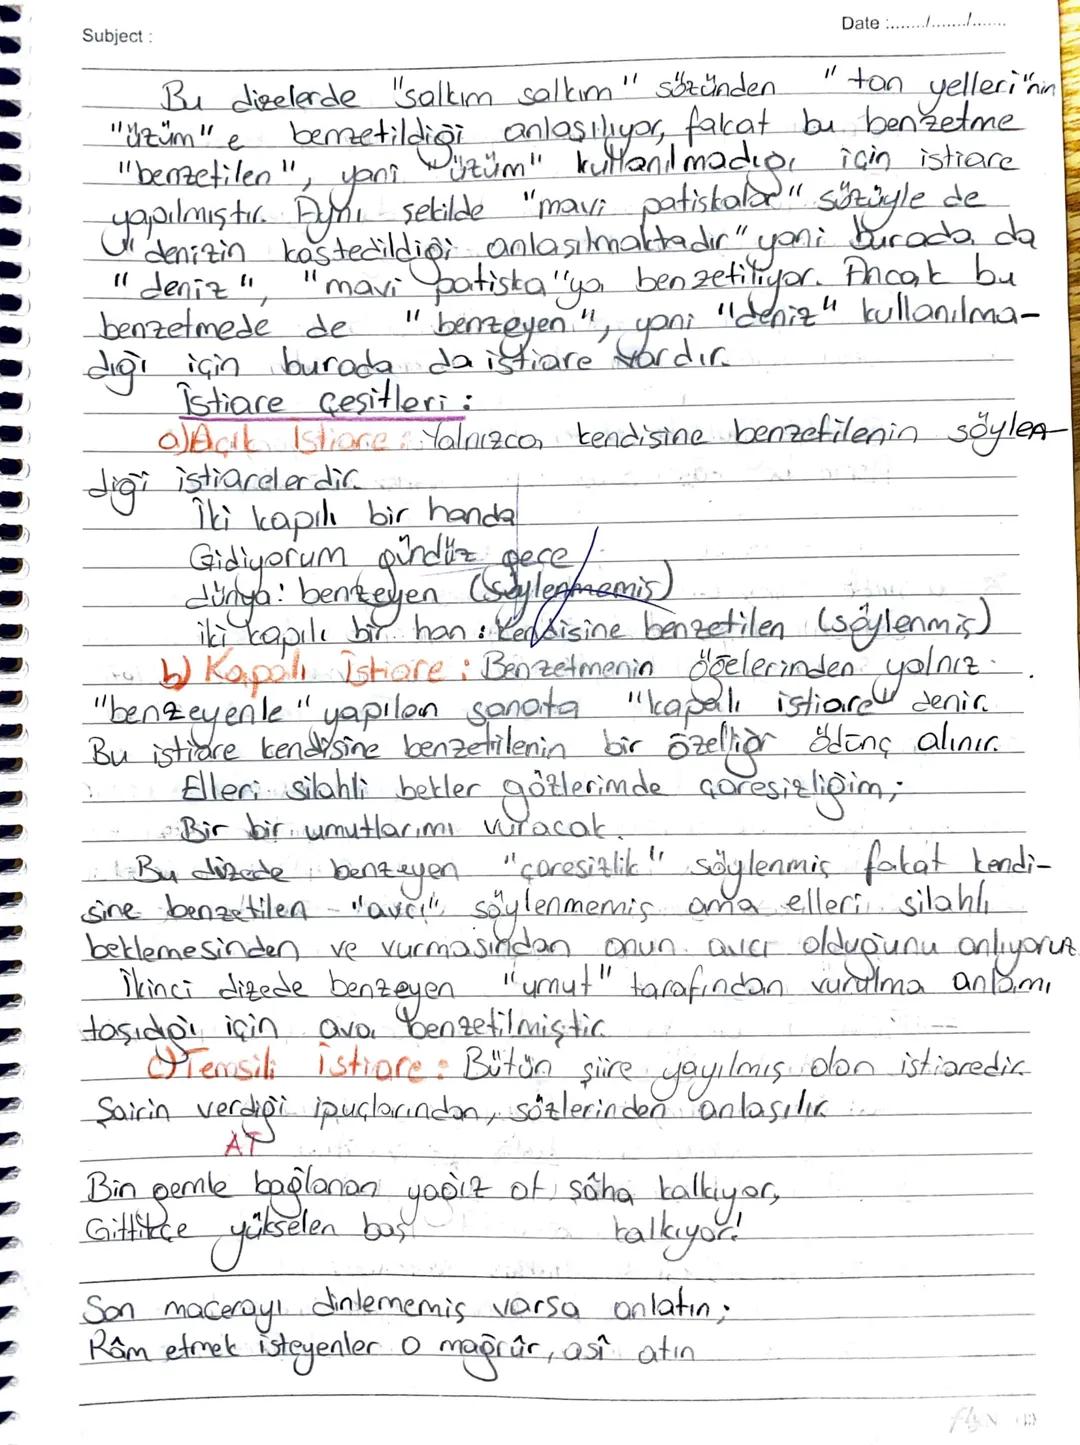 Subject :
Date :......./......./.......
Bu dizelerde "salkım salkım" sözünden "tan yelleri"nin
"üzüm" e benzetildiği anlaşılıyor, fakat bu benzetme
"benzetilen", yani "üzüm" kullanılmadığı için istiare
yapılmıştır. Aynı şekilde "mavi patiskalar" sözüyle de
"denizin kastedildiği anlaşılmaktadır" yani burada da
"deniz", "mavi patiska"ya benzetiliyor. Ancak bu
benzetmede de "benzeyen", yani "deniz" kullanılma-
dığı için burada da istiare vardır.
İstiare Çeşitleri :
a) Açık İstiare : Yalnızca kendisine benzetilenin söylen
diği istiarelerdir.
İki kapılı bir handa
Gidiyorum gündüz gece
dünya: benzeyen (söylenmemiş)
iki kapılı bir han : Kendisine benzetilen (söylenmiş)
b) Kapalı İstiare : Benzetmenin öğelerinden yalnız
"benzeyenle" yapılan sanata "kapalı istiare" denir.
Bu istiare kendisine benzetilenin bir özelliği ödünç alınır.
Elleri silahlı bekler gözlerimde çaresizliğim;
Bir bir umutlarımı vuracak.
Bu dizede benzeyen "çaresizlik" söylenmiş fakat kendi-
sine benzetilen "avcı" söylenmemiş ama elleri silahlı
beklemesinden ve vurmasından onun avcı olduğunu anlıyoruz
İkinci dizede benzeyen "umut" tarafından vurulma anlamı
taşıdığı için ava benzetilmiştir.
c) Temsili İstiare : Bütün şiire yayılmış olan istiaredir.
Şairin verdiği ipuçlarından, sözlerinden anlaşılır.
AT
Bin gemle bağlanan yağız at şâha kalkıyor,
Gittikçe yükselen baş kalkıyor!
Son macerayı dinlememiş varsa anlatın;
Râm etmek isteyenler o mağrûr, asî atın